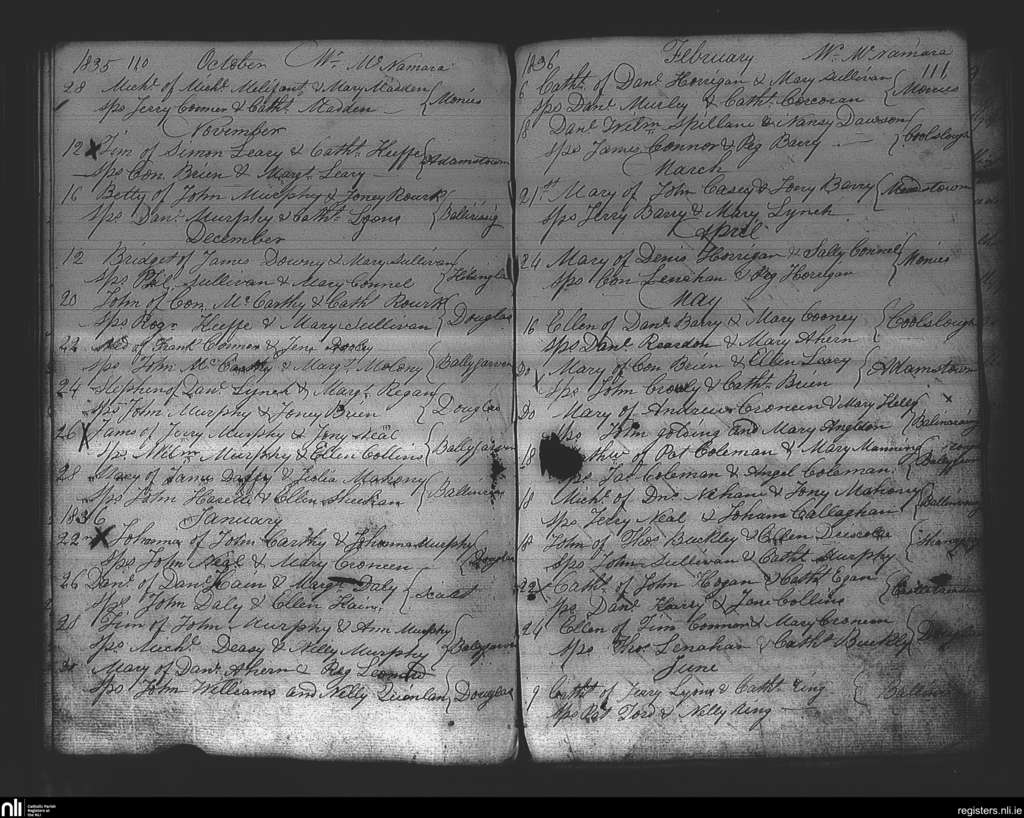 1835 110 October Wm. McNamara
28 Michl. of Michl. Melifont & Mary Madden
Sps Jerry Connor & Cathe. Madden { Monies
November
12 X Tim of Simon Leary & Cathe. Keeffe { Adamstown
Sps Con. Brien & Margt. Leary
16 Betty of John Murphy & Joney Rourk
Sps Danl. Murphy & Cathe. Lyons {
December
12 Bridget of James Downy & Mary Sullivan
Sps Sullivan & Mary Connel {
20 John of Con. McCarthy & Cathe. Rourk
Sps Rogr. Keeffe & Mary Sullivan { Douglas
22 of Frank Connor & Jeny
Sps John McCarthy & Margt. Molony { Ballygarvan
24 Stephen of Danl. Lynch & Margt. Regan
Sps John Murphy & Joney Brien { Douglas
26 X James of Jerry Murphy & Jony Neal
Sps. Willm. Murphy & Ellen Collins { Ballygarvan
28 Mary of James Duffy & Mahony
Sps John & Ellen Sheehan {
1836 January
22 X Johanna of John Carthy & Johanna Murphy
Sps John Neal & Mary Croneen { Douglas
26 Danl. of Danl. Hain & Margt. Daly
Sps John Daly & Ellen Hain {
28 Tim of John Murphy & Ann Murphy
Sps Michl. Deasy & Nelly Murphy {
Mary of Danl. Ahern & Peg Leonard
Sps John Williams and Nelly Quinlan { Douglas
1836 February Wm. McNamara
111
6 Cathe. of Danl. Horrigan & Mary Sullivan
Sps Danl. Murley & Cathe. Corcoran { Monies
18 Danl. Willm. Spillane & Nancy Dawson
Sps James Connor & Peg Barry { Coolslough
March
21st Mary of John Casey & Jony Barry {
Sps Jerry Barry & Mary Lynch
April
24 Mary of Denis Horrigan & Sally Connel { Monies
Sps Con Lenehan & Peg Horrigan
May
16 Ellen of Danl. Barry & Mary Cooney { Coolslough
Sps Danl. Reardon & Mary Ahern
Mary of Con Brien & Ellen Leary { Adamstown
Sps John Crowly & Cathe. Brien
Mary of Andrew Croneen & Mary Kelly
Sps John golding and Mary Anglim {
18 of Pat Coleman & Mary Manning
Sps Jas. Coleman & Angel Coleman {
18 Michl. of Dns. Kehane & Jony Mahony
Sps Jerry Neal & Johana Callaghan {
18 John of Thos. Buckley & Ellen Driscole
Sps John Sullivan & Cathe. Murphy {
22 X Cathe. of John Hogan & Cathe. Egan
Sps Danl. Harry & Jane Collins {
24 Ellen of Tim Connor & Mary Croneen
Sps Thos. Lenahan & Cathe. Buckley { Douglas
June
9 Cathe. of Jerry Lyons & Cathe. Ring
Sps Pat Ford & Nelly Ring {
nli Catholic Parish Registers at the NLI
registers.nli.ie